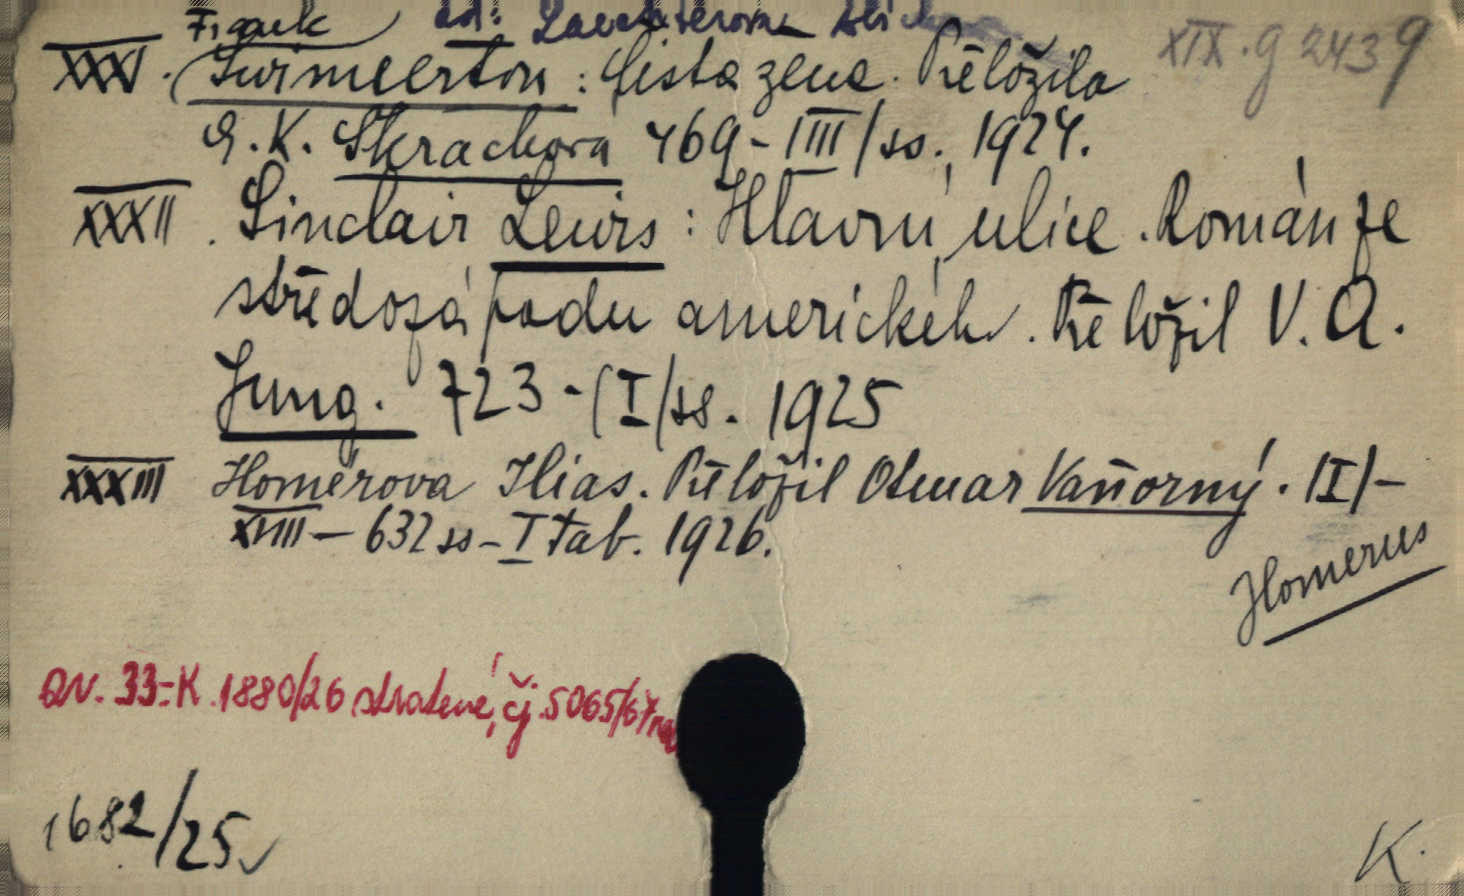 Frank
XIX.g 2439
XXV. Swinnerton: Čistá žena. Přeložila
G. K. Škrachová 469-III/ss., 1924.
XXXII. Sinclair Lewis: Hlavní ulice. Román ze
středozápadu amerického. Přeložil V. A.
Jung. 723-(I/ss. 1925
XXXIII Homérova Ilias. Přeložil Otmar Vaňorný. II/-
XVIII-632 ss-I tab. 1926.
Homerus
zv. 33=K.1880/26 stratené, čj. 5065/67
1682/25
K.